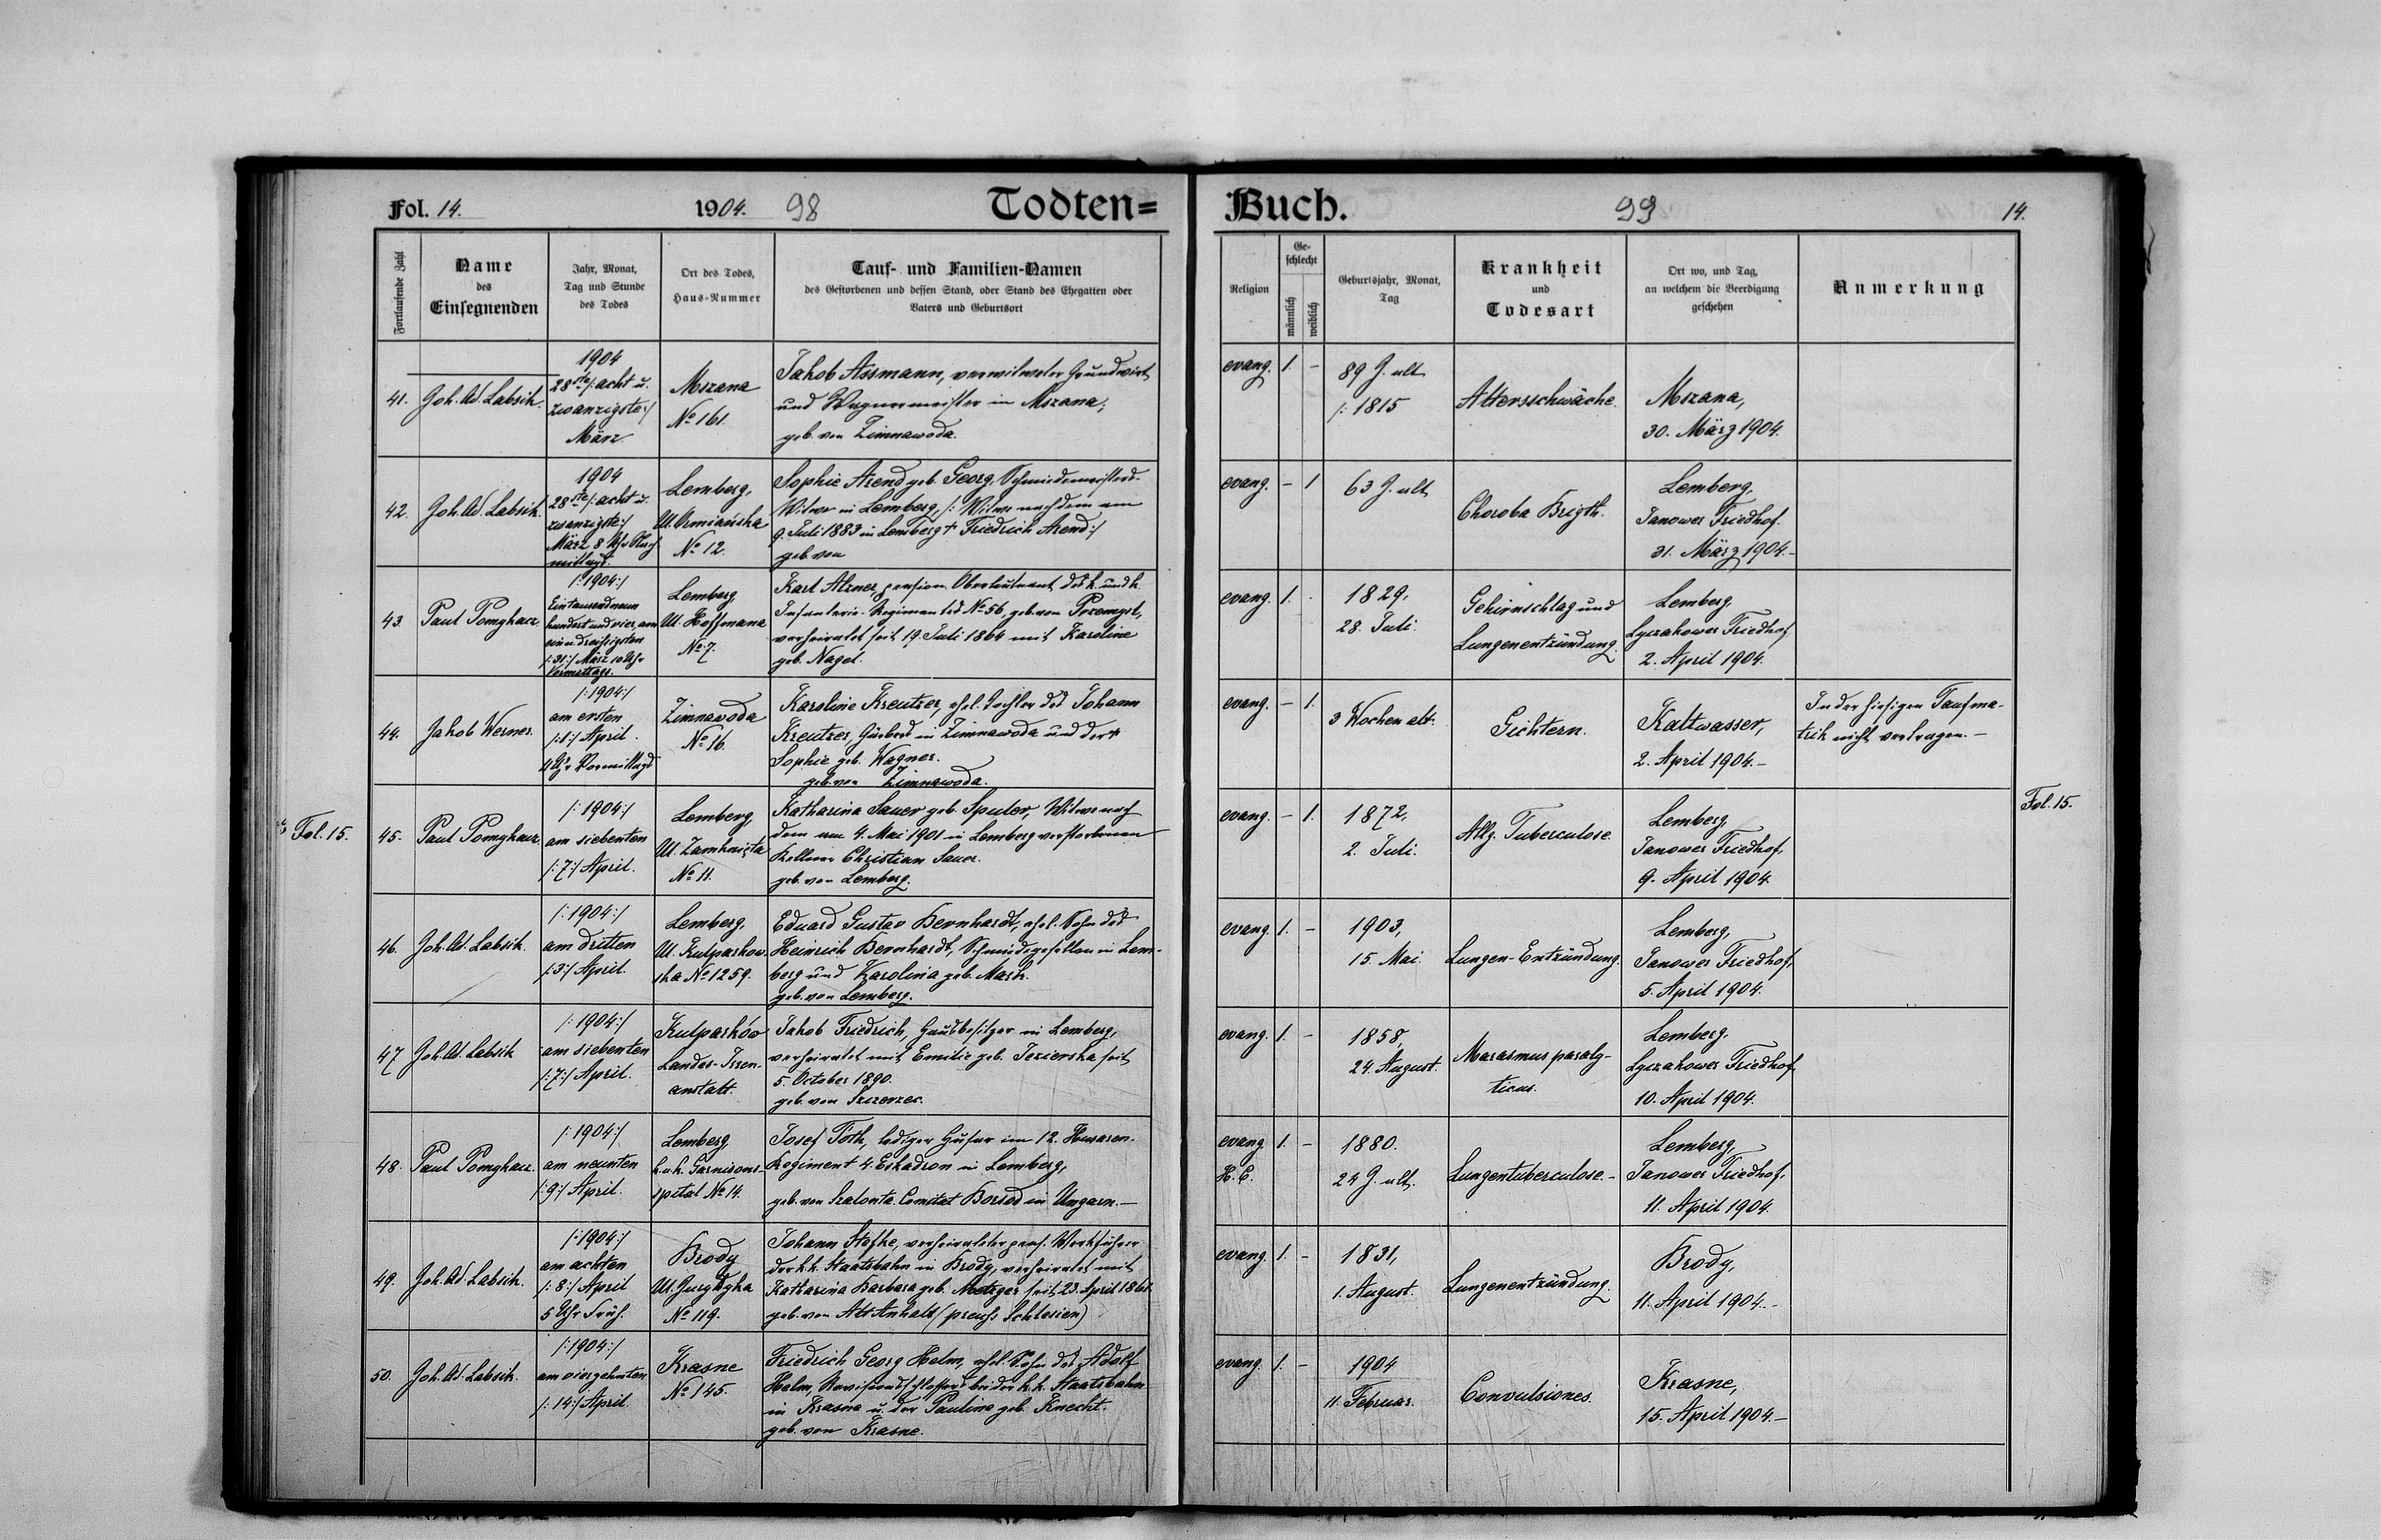 Fol. 14.
1904.
98
Todten=
Buch.
99
14.
Fortlaufende Zahl
Name
des
Einsegnenden
Jahr, Monat,
Tag und Stunde
des Todes
Ort des Todes,
Haus-Nummer
Tauf- und Familien-Namen
des Gestorbenen und dessen Stand, oder Stand des Ehegatten oder
Vaters und Geburtsort
Religion
Ge-
schlecht
männlich
weiblich
Geburtsjahr, Monat,
Tag
Krankheit
und
Todesart
Ort wo, und Tag,
an welchem die Beerdigung
geschehen
Anmerkung
41.
Joh. Ad. Labsik.
1904
28ste /: acht u.
zwanzigste :/
März.
Mszana
No 161.
Jakob Assmann, verwitweter Grundwirt
und Wagnermeister in Mszana;
geb. von Zimnawoda.
evang.
1.
-
89 J. alt
/: 1815
Altersschwäche.
Mszana,
30. März 1904.
42.
Joh. Ad. Labsik.
1904
28ste /: acht u.
zwanzigste :/
März 8 Uhr Nach-
mittags.
Lemberg,
Ul. Ormiańska
No 12.
Sophie Arend geb. Georg, Schmiedemeisters-
Witwe in Lemberg, /: Witwe nach dem am
9. Juli 1883 in Lemberg † Friedrich Arend :/
geb. von
evang.
-
1
63 J. alt
Choroba Brigth.
Lemberg,
Janower Friedhof.
31. März 1904.-
43.
Paul Pomyhacz
/: 1904 :/
Eintausendneun
hundert und vier, am
einunddreißigsten
/: 31 :/ März 10 Uhr
Vormittags.
Lemberg
Ul. Hoffmana
No 7.
Karl Alzner, pension. Oberleutnant des k. und k.
Infanterie-Regimentes No 56, geb. von Przemysl,
verheiratet seit 19. Juli 1864 mit Karoline
geb. Nagel.
evang.
1.
1829,
28. Juli.
Gehirnschlag und
Lungenentzündung.
Lemberg,
Lyczakower Friedhof,
2. April 1904.
44.
Jakob Werner.
/: 1904 :/
am ersten
/: 1 :/ April.
11 Uhr Vormittags
Zimnawoda
No 16.
Karoline Kreutzer, ehel. Tochter des Johann
Kreutzer, in Zimnawoda und der
Sophie geb. Wagner.
geb. von Zimnawoda.
evang.
-
1.
3 Wochen alt.
Gichtern.
Kaltwasser,
2. April 1904.-
In der hiesigen Taufma-
trik nicht vertragen.-
Fol. 15.
45.
Paul Pomyhacz.
/: 1904 :/
am siebenten
/: 7 :/ April.
Lemberg
Ul. Zamknięta
No 11.
Katharina Sauer geb. Spuler, Witwe nach
dem am 4. Mai 1901 in Lemberg verstorbenen
Kellner Christian Sauer.
geb. von Lemberg.
evang.
-
1.
1872,
2. Juli.
Allg. Tuberculose.
Lemberg,
Janower Friedhof,
9. April 1904.
Fol. 15.
46.
Joh. Ad. Labsik.
/: 1904 :/
am dritten
/: 3 :/ April.
Lemberg,
Ul. Kulparkow-
ska No 1259.
Eduard Gustav Bernhardt, ehel. Sohn des
Heinrich Bernhardt, Schmiedgesellen in Lem-
berg und Karolina geb. Mack.
geb. von Lemberg.
evang.
1.
-
1903,
15. Mai.
Lungen-Entzündung.
Lemberg,
Janower Friedhof,
5. April 1904.
47
Joh. Ad. Labsik
/: 1904 :/
am siebenten
/: 7 :/ April.
Kulparków
Landes-Irren-
anstalt.
Jakob Friedrich, Hausbesitzer in Lemberg,
verheiratet mit Emilie geb. Jezierska seit
5. October 1890.
geb. von Szczerzec.
evang.
1.
-
1858,
24. August.
Marasmus paraly-
ticus.
Lemberg.
Lyczakower Friedhof
10. April 1904.
48.
Paul Pomyhacz.
/: 1904 :/
am neunten
/: 9 :/ April.
Lemberg
k.u.k. Garnisons-
spital No 14.
Josef Tóth, lediger Husar im 12. Husaren-
Regiment 4. Eskadron in Lemberg,
geb. von Szalonta Comitat Borsod in Ungarn.-
evang.
H. C.
1.
-
1880.
24 J. alt.
Lungentuberculose.-
Lemberg,
Janower Friedhof.
11. April 1904.
49.
Joh. Ad. Labsik.
/: 1904 :/
am achten
/: 8 :/ April
5 Uhr Früh.
Brody
No 119.
Johann Steffke, verheirateter pens. Werkführer
der k.k. Staatsbahn in Brody, verheiratet mit
Katharina Barbara geb. Metzger seit 23. April 1861.
geb. von Alt Anhalt (preuß. Schlesien)
evang.
1.
-
1831,
1. August.
Lungenentzündung.
Brody,
11. April 1904.-
50.
Joh. Ad. Labsik.
/: 1904 :/
am vierzehnten
/: 14 :/ April.
Krasne
No 145.
Friedrich Georg Helm, ehel. Sohn des Adolf
Helm, Revisionsschlossers bei der k.k. Staatsbahn
in Krasne u. der Pauline geb. Knecht.
geb. von Krasne.
evang.
1.
-
1904
11. Februar.
Convulsiones.
Krasne,
15. April 1904.-